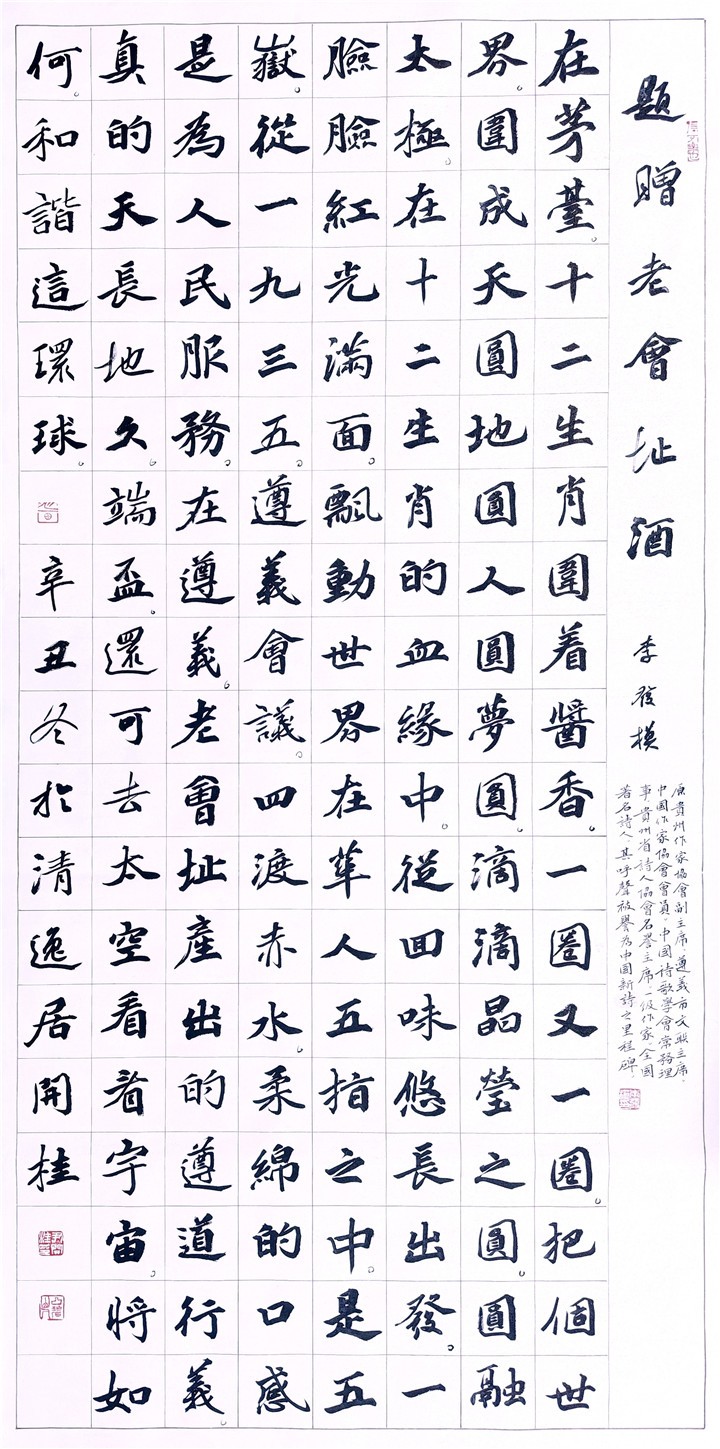 題贈老會址酒 李發模
原貴州作家協會副主席、遵義市文联主席、
中國作家協會會員、中國诗歌學會常務理
事、貴州省詩人協會名誉主席、一级作家、全國
著名詩人、其呼聲被譽為中國新詩之里程碑。
在茅臺。十二生肖圍着醬香。一圈又一圈。把個世
界。圍成天圓地圓人圓夢圓。滴滴晶瑩之圓。圓融
太極。在十二生肖的血緣中。從回味悠長出發。一
臉臉紅光滿面。飄動世界在華人五指之中。是五
嶽。從一九三五遵義會議。四渡赤水。柔綿的口感
是為人民服務。在遵義。老會址產出的遵道行義。
真的天長地久。端盃。還可去太空看看宇宙。將如
何。和諧這環球。 辛丑冬於清逸居開桂